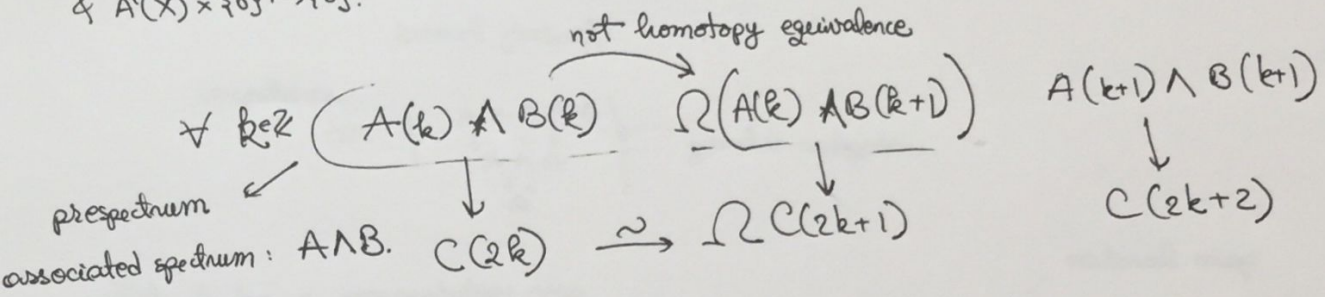 & A(X) × {0}
not homotopy equivalence
∀ k∈ℤ ( A(k) ∧ B(k) Ω(A(k) ∧ B(k+1)) A(k+1) ∧ B(k+1)
prespectrum
associated spectrum: A∧B. C(2k) ~→ ΩC(2k+1) C(2k+2)